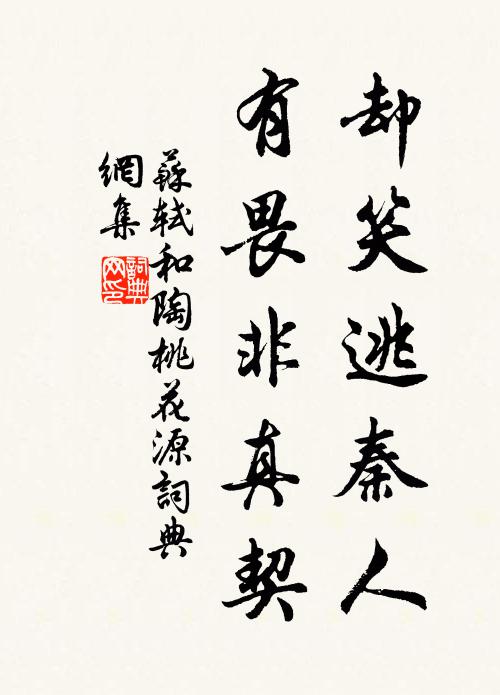 却笑逃秦人
有畏非真契
蘇軾和陶桃花源詞典
網集
詞典網印